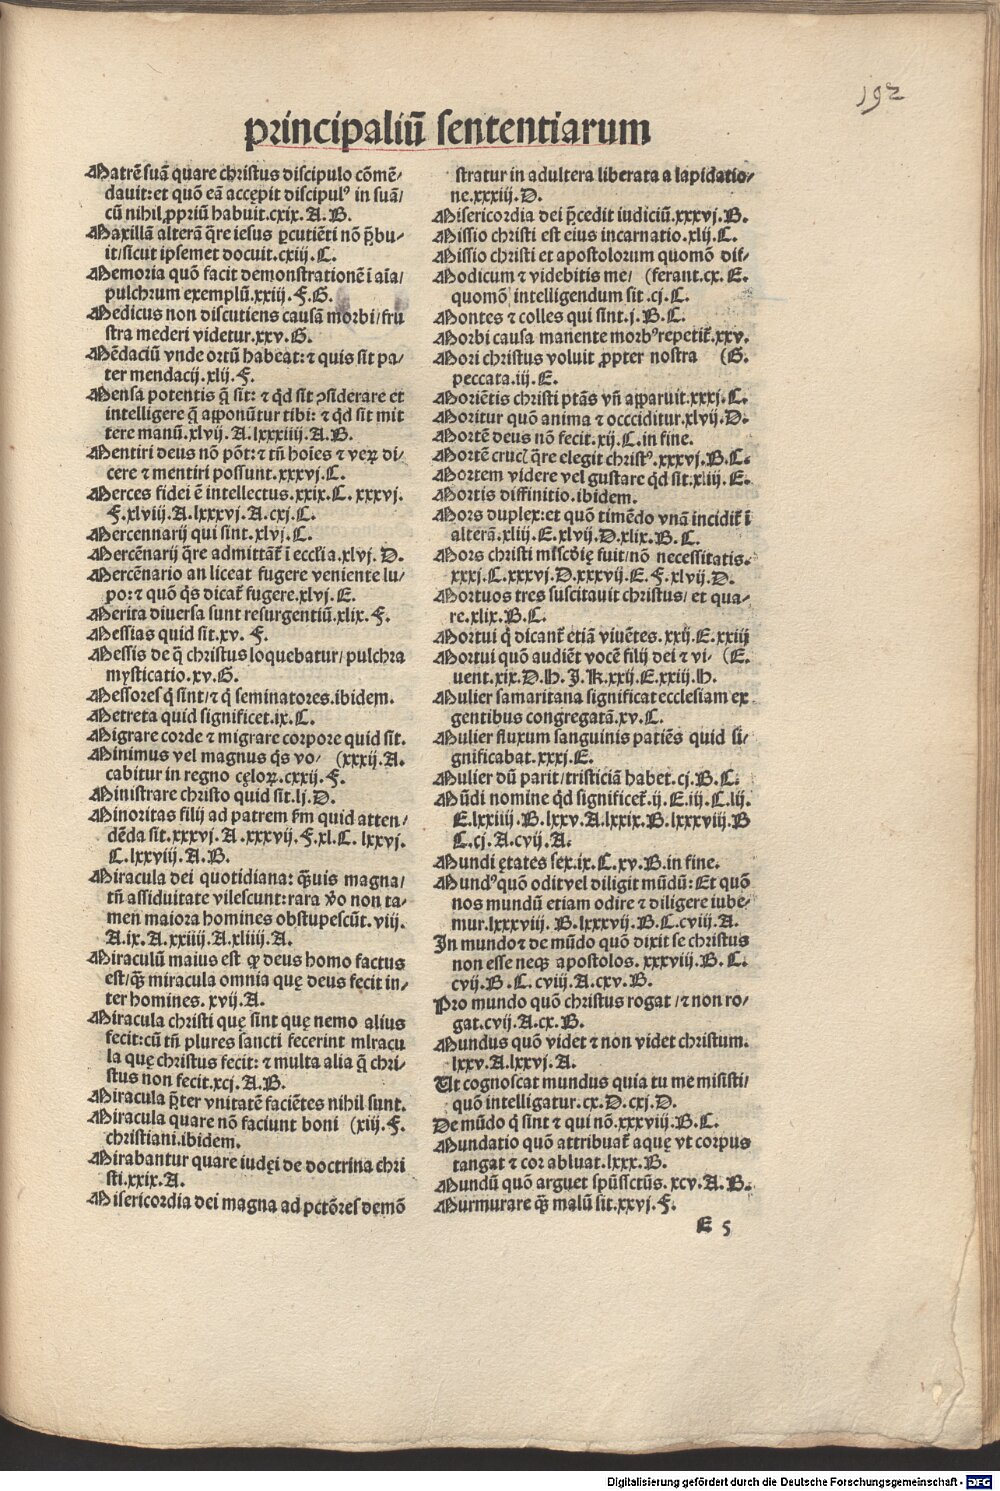 192
principaliū sententiarum
Matrē suā quare christus discipulo cōmē/
dauit: et quō eā accepit discipulꝰ in suā/
cū nihil ꝓpriū habuit.cxix.A.B.
Maxillā alterā q̄re iesus ꝑcutiēti nō p̄bu/
it/sicut ipsemet docuit.cxiij.C.
Memoria quō facit demonstrationē ī aīa/
pulchrum exemplū.xxiij.F.G.
Medicus non discutiens causā morbi/fru
stra mederi videtur.xxv.G.
Mēdaciū vnde ortū habeat: ⁊ quis sit pa/
ter mendacij.xlij.F.
Mensa potentis q̄ sit: ⁊ qd̄ sit ꝯsiderare et
intelligere q̄ apponūtur tibi: ⁊ qd̄ sit mit
tere manū.xlvij.A.lxxxiiij.A.B.
Mentiri deus nō pōt: ⁊ tn̄ hoīes ⁊ veꝝ di/
cere ⁊ mentiri possunt.xxxvj.C.
Merces fidei ē intellectus.xxix.C. xxxvj.
F.xlviij.A.lxxxvj.A.cxj.C.
Mercennarij qui sint.xlvj.C.
Mercēnarij q̄re admittāt̄ ī ecclīa.xlvj.D.
Mercēnario an liceat fugere veniente lu/
po: ⁊ quō q̄s dicat̄ fugere.xlvj.E.
Merita diuersa sunt resurgentiū.xlix.F.
Messias quid sit.xv. F.
Messis de q̄ christus loquebatur/pulchra
mysticatio.xv.G.
Messores q̄ sint/⁊ q̄ seminatores.ibidem.
Metreta quid significet.ix.C.
Migrare corde ⁊ migrare corpore quid sit.
Minimus vel magnus q̄s vo/ (xxxij.A.
cabitur in regno cęloꝝ.cxxij.F.
Ministrare christo quid sit.lj.D.
Minoritas filij ad patrem fm quid atten/
dēda sit.xxxvj.A.xxxvij.F.xl.C. lxxvj.
C.lxxviij.A.B.
Miracula dei quotidiana: q̄uis magna/
tn̄ assiduitate vilescunt: rara v̄o non ta/
men maiora homines obstupescūt.viij.
A.ix.A.xxiiij.A.xliiij.A.
Miraculū maius est ꝙ deus homo factus
est/q̄ miracula omnia quę deus fecit in/
ter homines.xvij.A.
Miracula christi quę sint quę nemo alius
fecit: cū tn̄ plures sancti fecerint miracu
la quę christus fecit: ⁊ multa alia q̄ chri/
stus non fecit.xcj.A.B.
Miracula p̄ter vnitatē faciētes nihil sunt.
Miracula quare nō faciunt boni (xiij.F.
christiani.ibidem.
Mirabantur quare iudęi de doctrina chri
sti.xxix.A.
Misericordia dei magna ad pctōres demō
stratur in adultera liberata a lapidatio/
ne.xxxiij.D.
Misericordia dei p̄cedit iudiciū.xxxvj.B.
Missio christi est eius incarnatio.xlij.C.
Missio christi et apostolorum quomō dif/
Modicum ⁊ videbitis me/ (ferant.cx.E.
quomō intelligendum sit.cj.C.
Montes ⁊ colles qui sint.j.B.C.
Morbi causa manente morbꝰ repetit̄.xxv.
Mori christus voluit ꝓpter nostra (G.
peccata.iij.E.
Moriētis christi ptās vn̄ apparuit.xxxj.C.
Moritur quō anima ⁊ occciditur.xlvij.D.
Mortē deus nō fecit.xij.C.in fine.
Mortē cruc̄ q̄re elegit christꝰ.xxxvj.B.C.
Mortem videre vel gustare qd̄ sit.xliij.E.
Mortis diffinitio.ibidem.
Mors duplex: et quō timēdo vnā incidit̄ ī
alterā.xliij.E.xlvij.D.xlix.B.C.
Mors christi mīscđię fuit/nō necessitatis.
xxxj.C.xxxvj.D.xxxvij.E.F.xlvij.D.
Mortuos tres suscitauit christus/et qua/
re.xlix.B.C.
Mortui q̄ dicant̄ etiā viuētes.xxij.E.xxiij
Mortui quō audiēt vocē filij dei ⁊ vi/ (E.
uent.xix.D.H.J.K.xxij.E.xxiij.H.
Mulier samaritana significat ecclesiam ex
gentibus congregatā.xv.C.
Mulier fluxum sanguinis patiēs quid si/
gnificabat.xxxj.E.
Mulier dū parit/tristiciā habet.cj.B.C.
Mūdi nomine qd̄ significet̄.ij.E.iij.C.lij.
E.lxxiiij.B.lxxv.A.lxxix.B.lxxxviij.B
C.cj.A.cvij.A.
Mundi ętates sex.ix.C.xv.B.in fine.
Mundꝰ quō odit vel diligit mūdū: Et quō
nos mundū etiam odire ⁊ diligere iube/
mur.lxxxviij.B.lxxxvij.B.C.cviij.A.
In mundo ⁊ de mūdo quō dixit se christus
non esse neqꝫ apostolos. xxxviij.B.C.
cvij.B.C.cviij.A.cxv.B.
Pro mundo quō christus rogat/⁊ non ro/
gat.cvij.A.cx.B.
Mundus quō videt ⁊ non videt christum.
lxxv.A.lxxvj.A.
Ut cognoscat mundus quia tu me misisti/
quō intelligatur.cx.D.cxj.D.
De mūdo q̄ sint ⁊ qui nō.xxxviij.B.C.
Mundatio quō attribuat̄ aquę vt corpus
tangat ⁊ cor abluat.lxxx.B.
Mundū quō arguet spūssctūs.xcv.A.B.
Murmurare q̄ malū sit.xxvj.F.
E 5
Digitalisierung gefördert durch die Deutsche Forschungsgemeinschaft - DFG